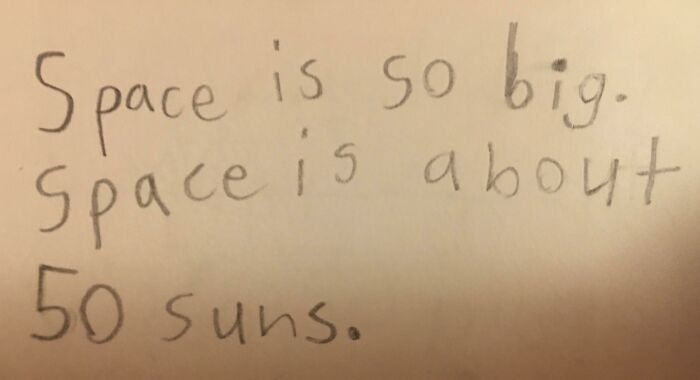 Space is so big.
Space is about
50 suns.